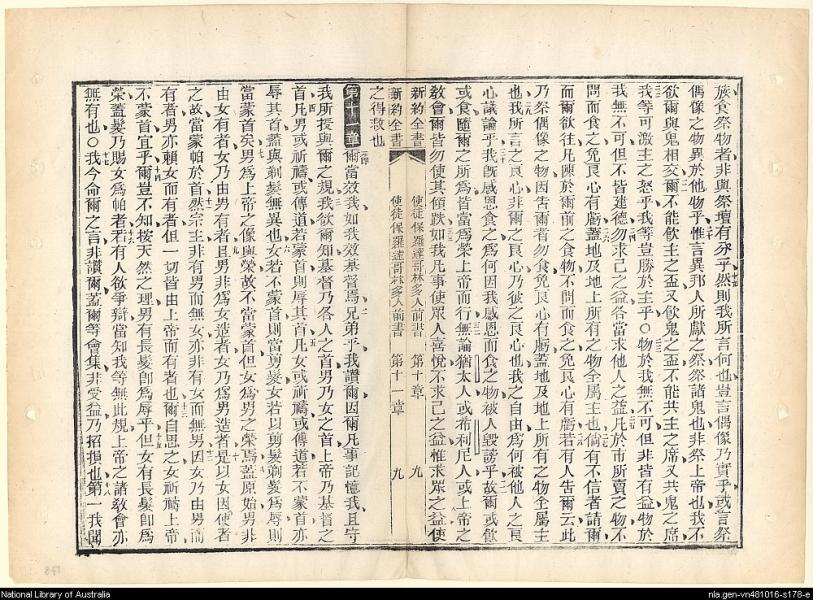 族食祭物者非與祭壇有分乎然則我所言何也豈言偶像乃實乎或言祭
偶像之物異於他物乎惟言異邦人所獻之祭祭諸鬼也非祭上帝也我不
欲爾與鬼相交爾不能飲主之盃又飲鬼之盃不能共主之席又共鬼之席
我等可激主之怒乎我等豈勝於主乎○物於我無不可但非皆有益物於
我無不可但不皆建德勿求己之益各當求他人之益凡於市所賣之物不
問而食之免良心有虧蓋地及地上所有之物全屬主也倘有不信者請爾
而爾欲往凡陳於爾前之食物不問而食之免良心有虧若有人告爾云此
乃祭偶像之物因告爾者勿食免良心有虧蓋地及地上所有之物全屬主
也我所言之良心非爾之良心乃彼之良心也我之自由為何被他人之良
心議論乎我旣感恩食之為何因我感恩而食之物被人毀謗乎故爾或飲
或食隨爾之所為皆當為榮上帝而行無論猶太人或希利尼人或上帝之
敎會爾皆勿使其傾跌如我凡事使眾人喜悅不求己之益惟求眾之益使
新約全書 使徒保羅達哥林多人前書 第十章 九
新約全書 使徒保羅達哥林多人前書 第十一章 九
之得救也
第十一章 爾當效我如我效基督焉兄弟乎我讚爾因爾凡事記憶我且守
我所授與爾之規我欲爾知基督乃各人之首男乃女之首上帝乃基督之
首凡男或祈禱或傳道若蒙首則辱其首凡女或祈禱或傳道若不蒙首亦
辱其首蓋與剃髮無異也女若不蒙首則當剪髮女若以剪髮剃髮為辱則
當蒙首矣男為上帝之像與榮故不當蒙首但女為男之榮焉蓋原始男非
由女有者女乃由男有者且男非為女造者女乃為男造者是以女因使者
之故當蒙帕於首然宗主非有男而無女亦非有女而無男因女乃由男而
有者男亦賴女而有者但一切皆由上帝而有者也爾自思之女祈禱上帝
不蒙首宜乎爾豈不知按天然之理男有長髮卽為辱乎但女有長髮卽為
榮蓋髮乃賜女為帕者若有人欲爭辯當知我等無此規上帝之諸敎會亦
無有也○我今命爾之言非讚爾蓋爾等會集非受益乃招損也第一我聞
National Library of Australia
nla.gen-vn481016-s178-e